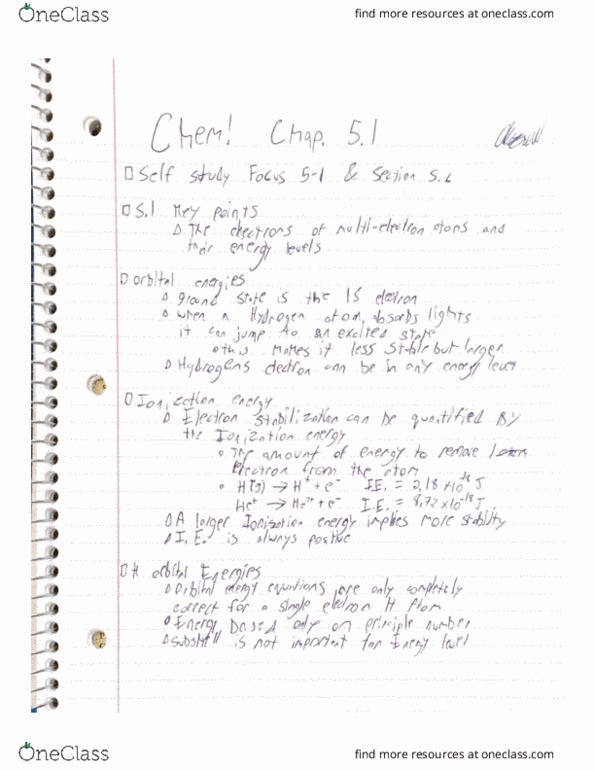 OneClass
find more resources at oneclass.com
Chem! Chap. 5.1
Self study Focus 5-1 & Section 5.2
5.1 Key points
The electrons of multi-electron atoms and
their energy levels
orbital energies
ground state is the 1S electron
when a Hydrogen atom, absorbs lights
it can jump to an excited state
this makes it less stable but larger
Hydrogens electron can be in any energy level
Ionization energy
Electron stabilization can be quantified By
the Ionization energy
The amount of energy to remove
electron from the atom
H(g) → H⁺ + e⁻ I.E. = 2.18 x10⁻¹⁸ J
He⁺ → He²⁺ + e⁻ I.E. = 8.72 x10⁻¹⁸ J
A larger Ionization energy implies more stability
I.E. is always positive
H orbital Energies
Orbital energy equations are only completely
correct for a single electron H atom
Energy based only on principle number
Subshell is not important for Energy level
OneClass
find more resources at oneclass.com